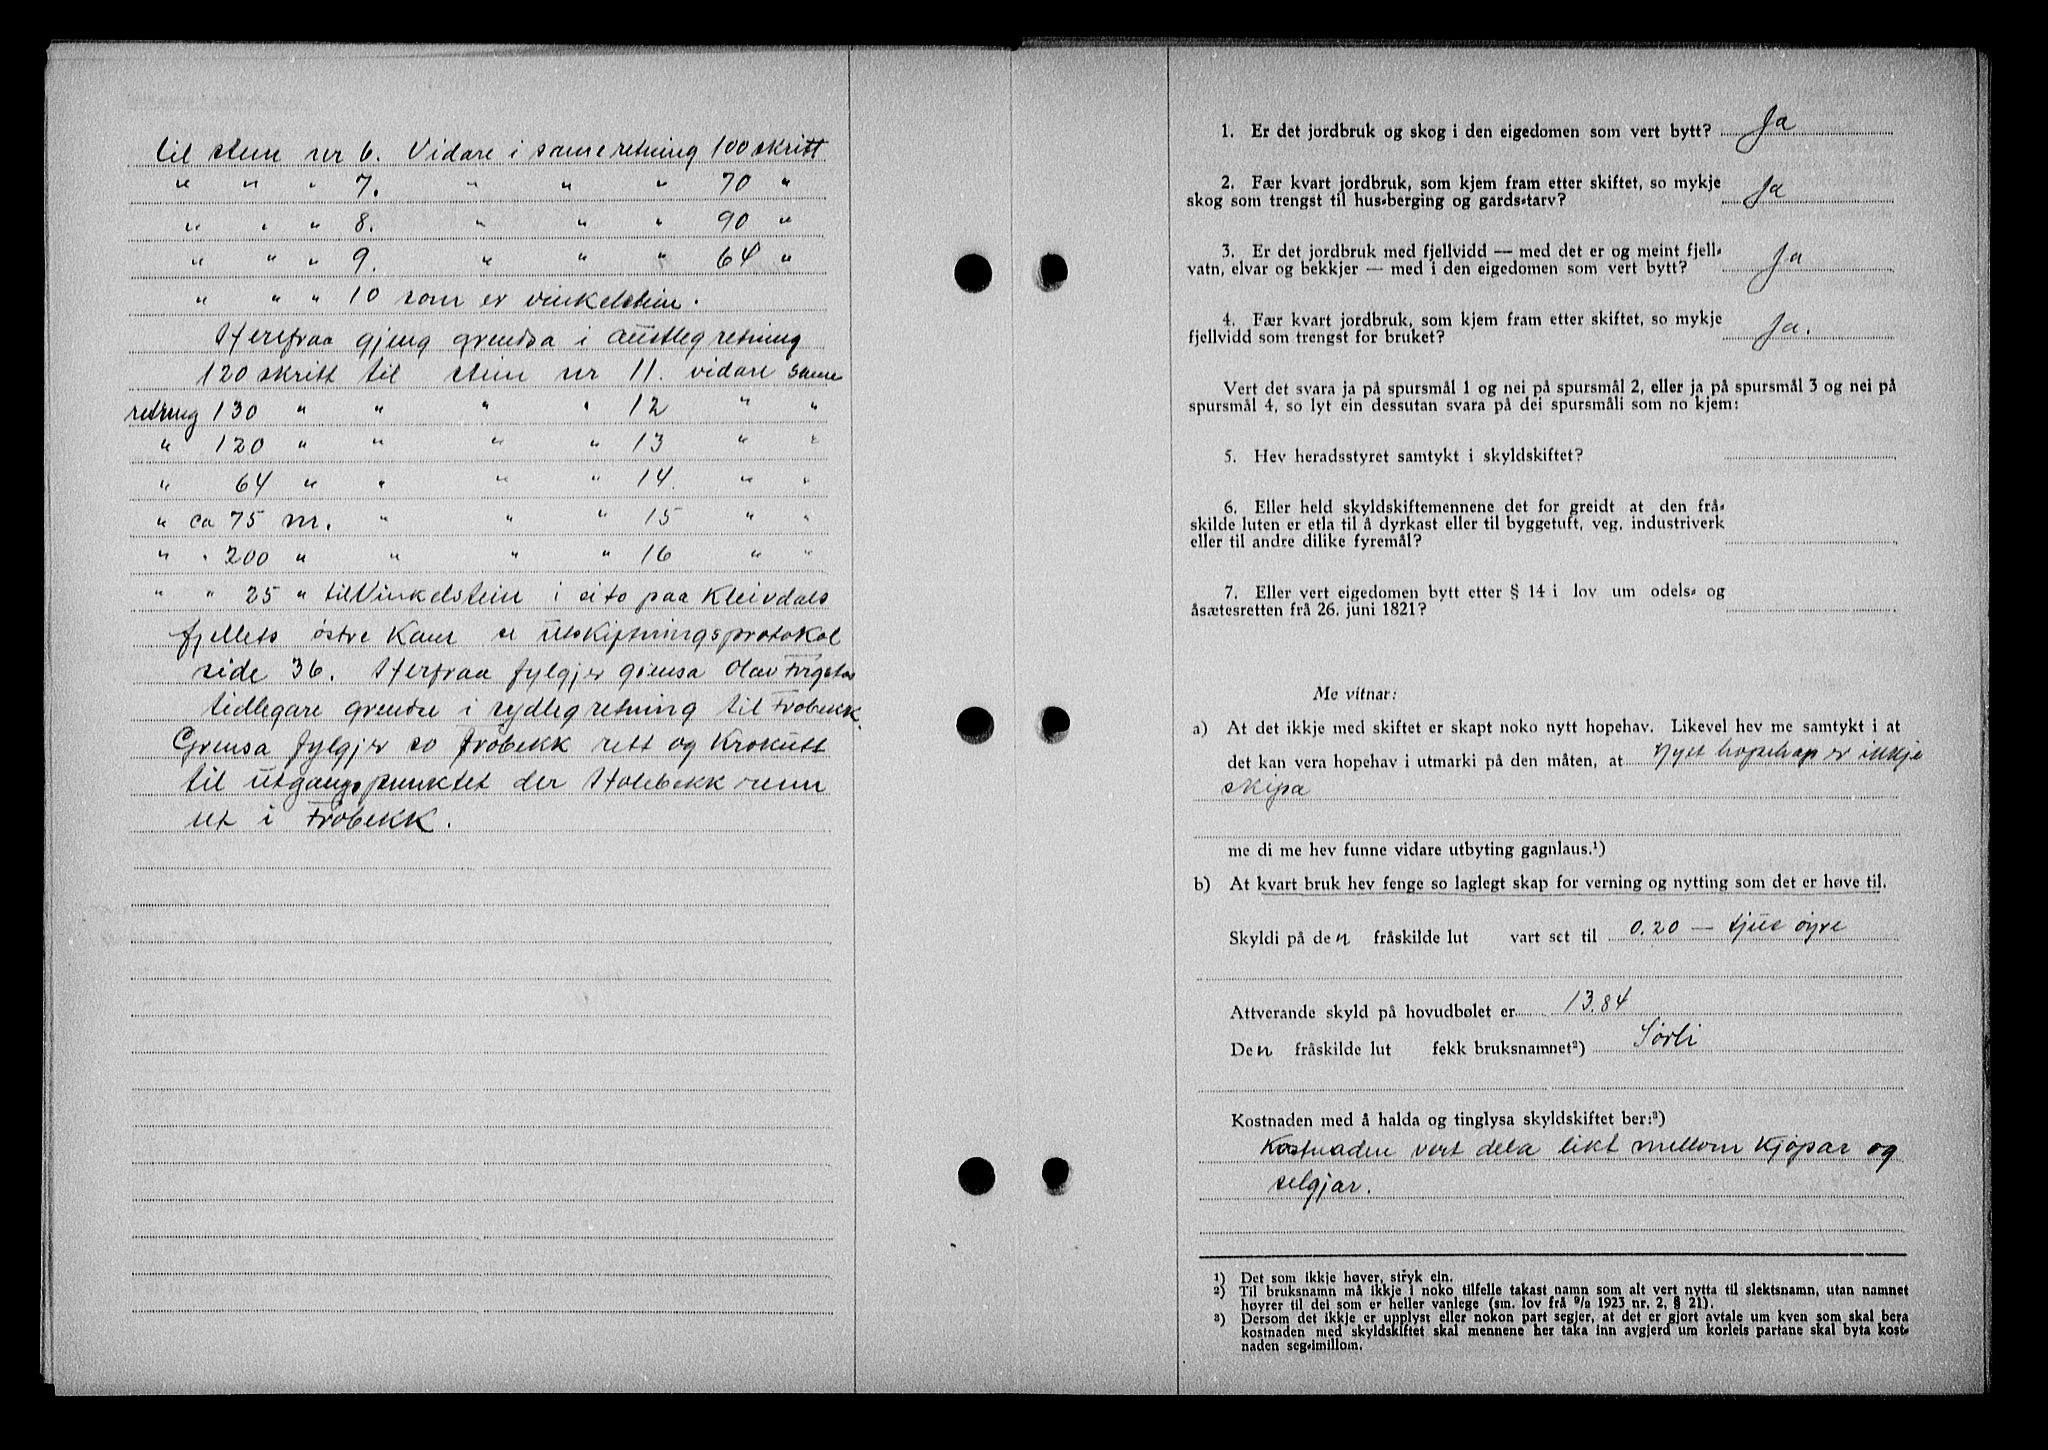 til stein nr 6. Vidare i same retning 100 skritt
" " " 7. " " " 70 "
" " " 8. " " " 90 "
" " " 9. " " " 64 "
" " " 10 som er vinkelstein.
Herefraa gjeng grendsa i austleg retning
120 skritt til stein nr 11. vidare same
retning 130 " " " " 12 " "
" 120 " " " " 13 " "
" 64 " " " " 14. " "
" ca 75 m. " " " 15 " "
" " 200 " " " " 16 " "
" " 25 " til Vinkelstein i paa Kleivdals
fjellets østre Kam se utskiptningsprotokol
side 36. Herfraa fylgjer grensa Olav
tidlegare grendse i sydleg retning til Frobekk.
Grensa fylgjer so Frobekk rett og Krokutt
til utgangspunktet der Holebekk renn
ut i Frobekk.
1. Er det jordbruk og skog i den eigedomen som vert bytt? Ja
2. Fær kvart jordbruk, som kjem fram etter skiftet, so mykje
skog som trengst til hus-berging og gards-tarv? Ja
3. Er det jordbruk med fjellvidd — med det er og meint fjell-
vatn, elvar og bekkjer — med i den eigedomen som vert bytt? Ja
4. Fær kvart jordbruk, som kjem fram etter skiftet, so mykje
fjellvidd som trengst for bruket? Ja.
Vert det svara ja på spursmål 1 og nei på spursmål 2, eller ja på spursmål 3 og nei på
spursmål 4, so lyt ein dessutan svara på dei spursmåli som no kjem:
5. Hev heradsstyret samtykt i skyldskiftet?
6. Eller held skyldskiftemennene det for greidt at den frå-
skilde luten er etla til å dyrkast eller til byggetuft, veg, industriverk
eller til andre dilike fyremål?
7. Eller vert eigedomen bytt etter § 14 i lov um odels- og
åsætesretten frå 26. juni 1821?
Me vitnar:
a) At det ikkje med skiftet er skapt noko nytt hopehav. Likevel hev me samtykt i at
det kan vera hopehav i utmarki på den måten, at Nytt hopehav er ikkje
skipa
me di me hev funne vidare utbyting gagnlaus.¹)
b) At kvart bruk hev fenge so laglegt skap for verning og nytting som det er høve til.
Skyldi på den fråskilde lut vart set til 0.20 — tjue øyre
Attverande skyld på hovudbølet er 13.84
Den fråskilde lut fekk bruksnamnet²) Sørli
Kostnaden med å halda og tinglysa skyldskiftet ber:³)
Kostnaden vert dela likt mellom Kjøpar og
selgjar.
¹) Det som ikkje høver, stryk ein.
²) Til bruksnamn må ikkje i noko tilfelle takast namn som alt vert nytta til slektsnamn, utan namnet
høyrer til dei som er heller vanlege (sm. lov frå 9/2 1923 nr. 2, § 21).
³) Dersom det ikkje er upplyst eller nokon part segjer, at det er gjort avtale um kven som skal bera
kostnaden med skyldskiftet skal mennene her taka inn avgjerd um korleis partane skal byta kost-
naden seg-imillom.